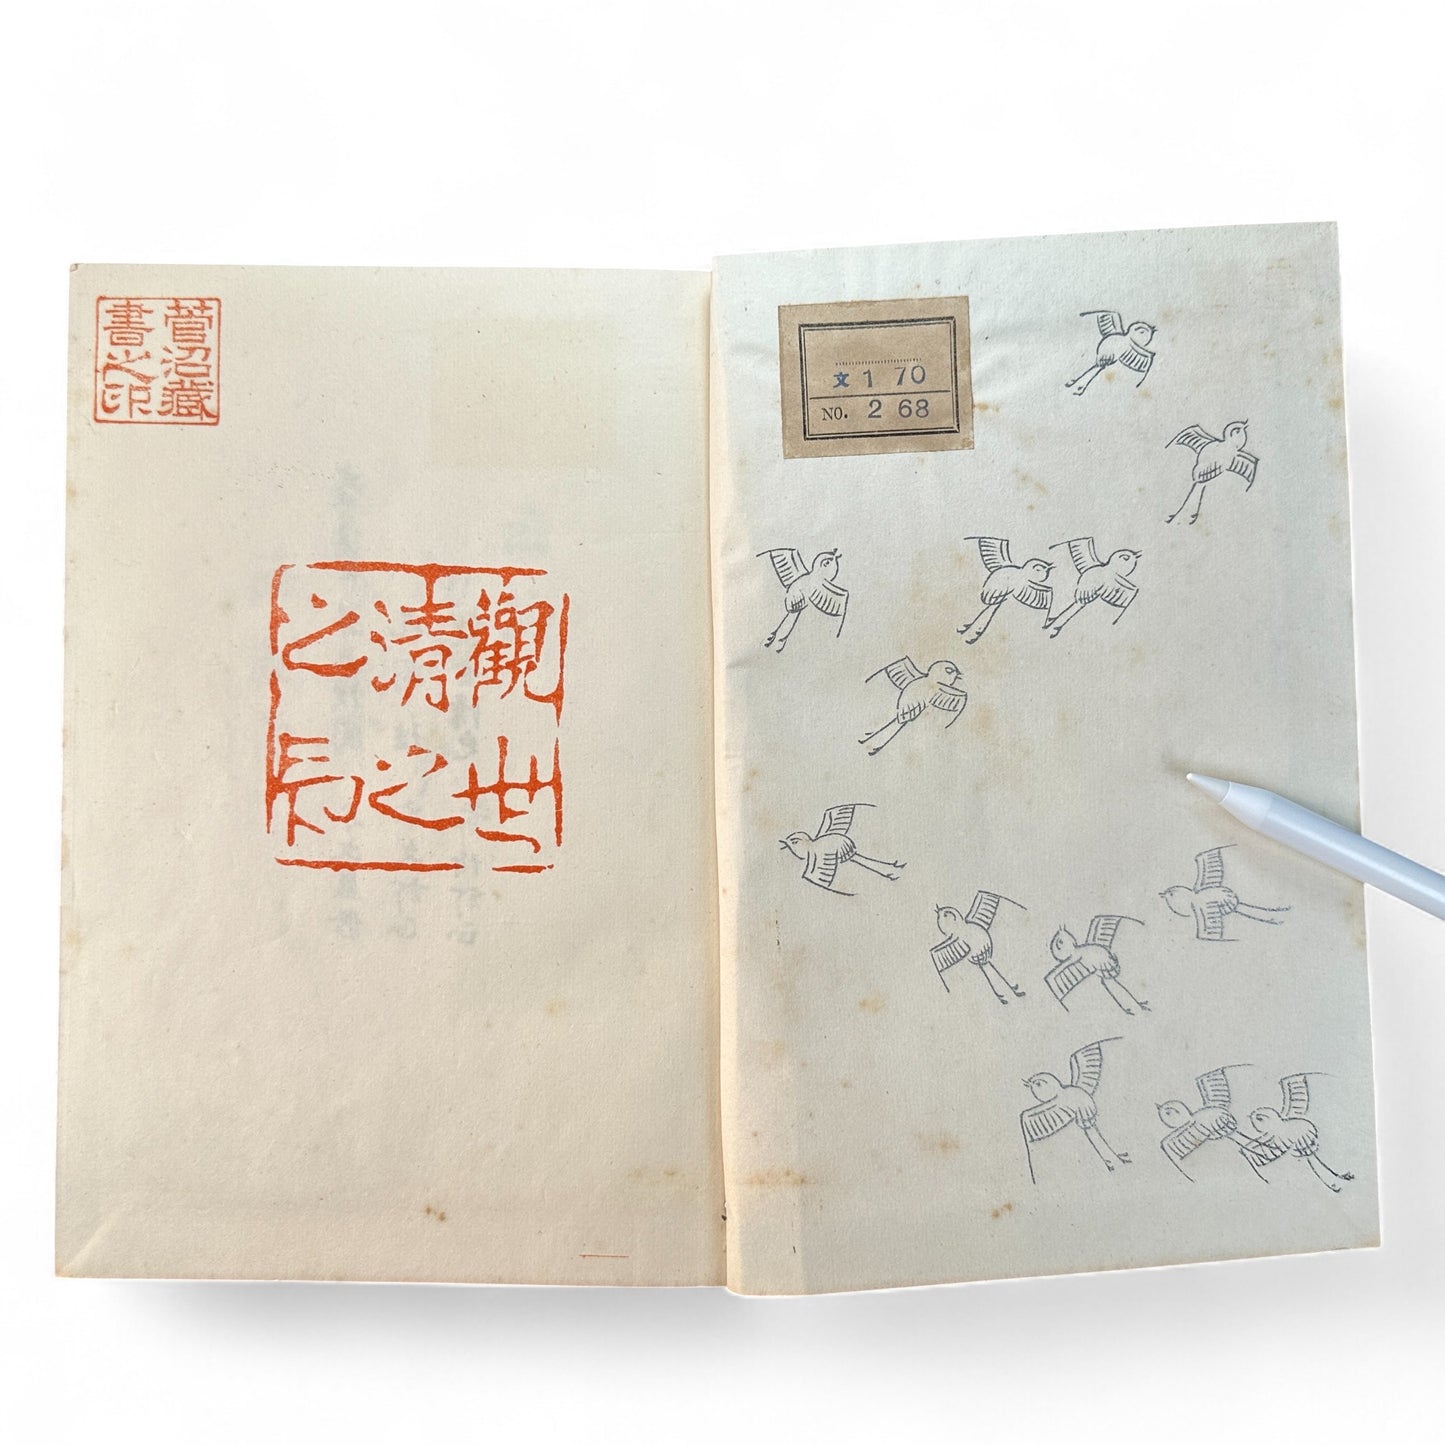 菅沼藏
書之印
觀世
清之
之印
文 1 70
NO. 2 68